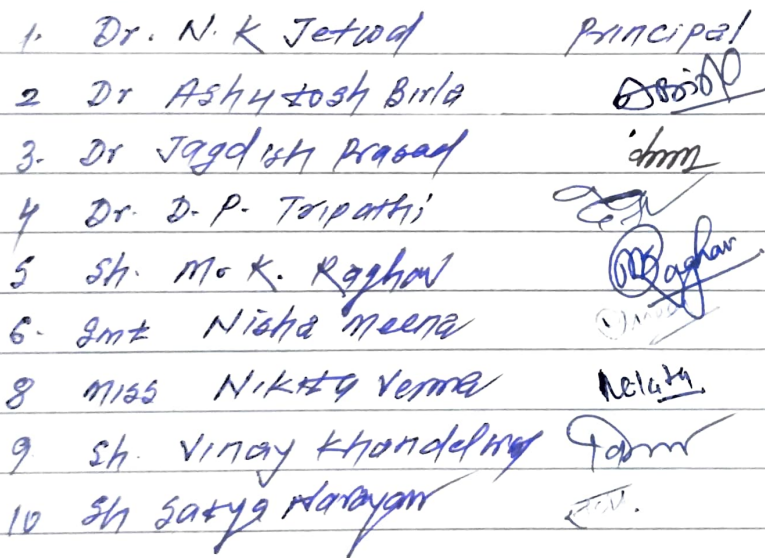 1. Dr. N. K Jetwal Principal
2 Dr Ashutosh Birla
3. Dr Jagdish Prasad
4 Dr. D. P. Tripathi
5 Sh. M. K. Raghav Raghav
6. Smt Nisha Meena
8 Miss Nikita Verma
9 Sh. Vinay Khandelwal
10 Sh Satya Narayan